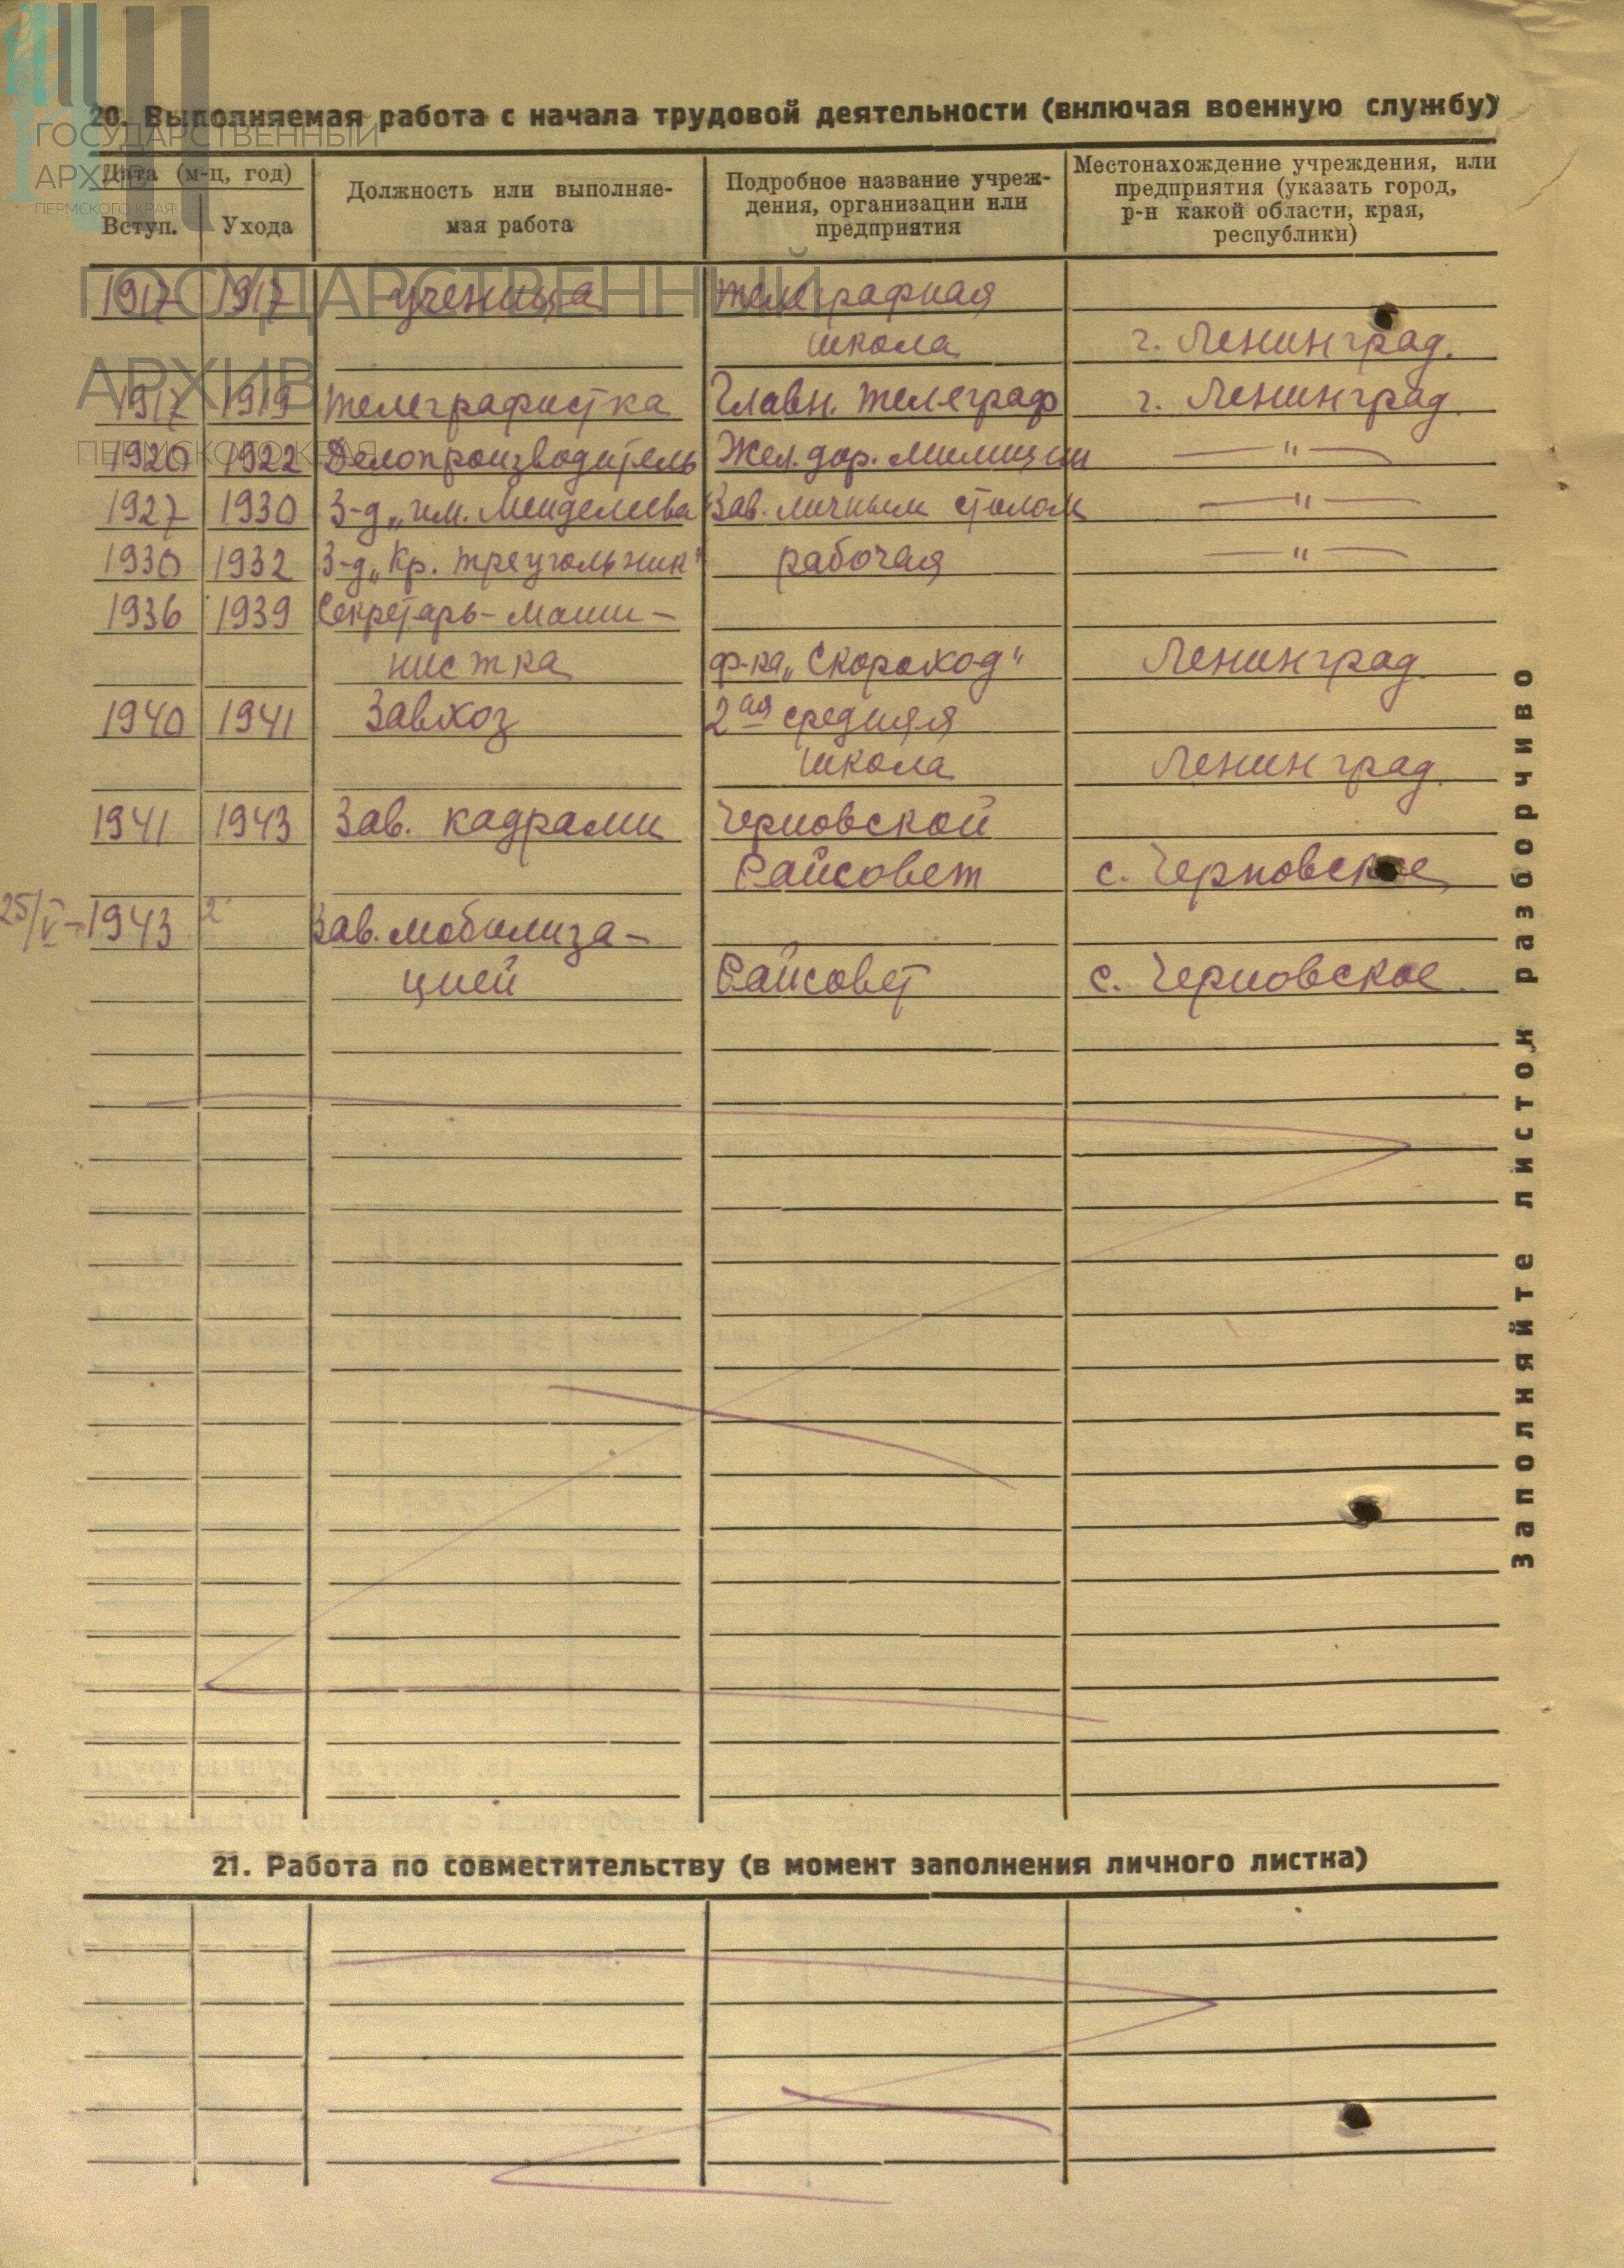 20. Выполняемая работа с начала трудовой деятельности (включая военную службу)
ГОСУДАРСТВЕННЫЙ
АРХИВ
ПЕРМСКОГО КРАЯ
Дата (м-ц, год)
Вступ. Ухода
Должность или выполняе-
мая работа
Подробное название учреж-
дения, организации или
предприятия
Местонахождение учреждения, или
предприятия (указать город,
р-н какой области, края,
республики)
ГОСУДАРСТВЕННЫЙ
АРХИВ
ПЕРМСКОГО КРАЯ
1917 1917 ученица телеграфная
школа г. Ленинград.
1917 1919 телеграфистка Главн. телеграф г. Ленинград.
1920 1922 Делопроизводитель Жел. дор. милиции — " —
1927 1930 З-д „им. Менделеева Зав. личным столом — " —
1930 1932 З-д „Кр. треугольник" рабочая — " —
1936 1939 Секретарь-маши-
нистка ф-ка „Скороход" Ленинград.
1940 1941 Завхоз 2ая средняя
школа Ленинград.
1941 1943 Зав. кадрами Черновской
Райсовет с. Черновское
25/V-1943 Зав. мобилиза-
цией Райсовет с. Черновское.
21. Работа по совместительству (в момент заполнения личного листка)
Заполняйте листок разборчиво